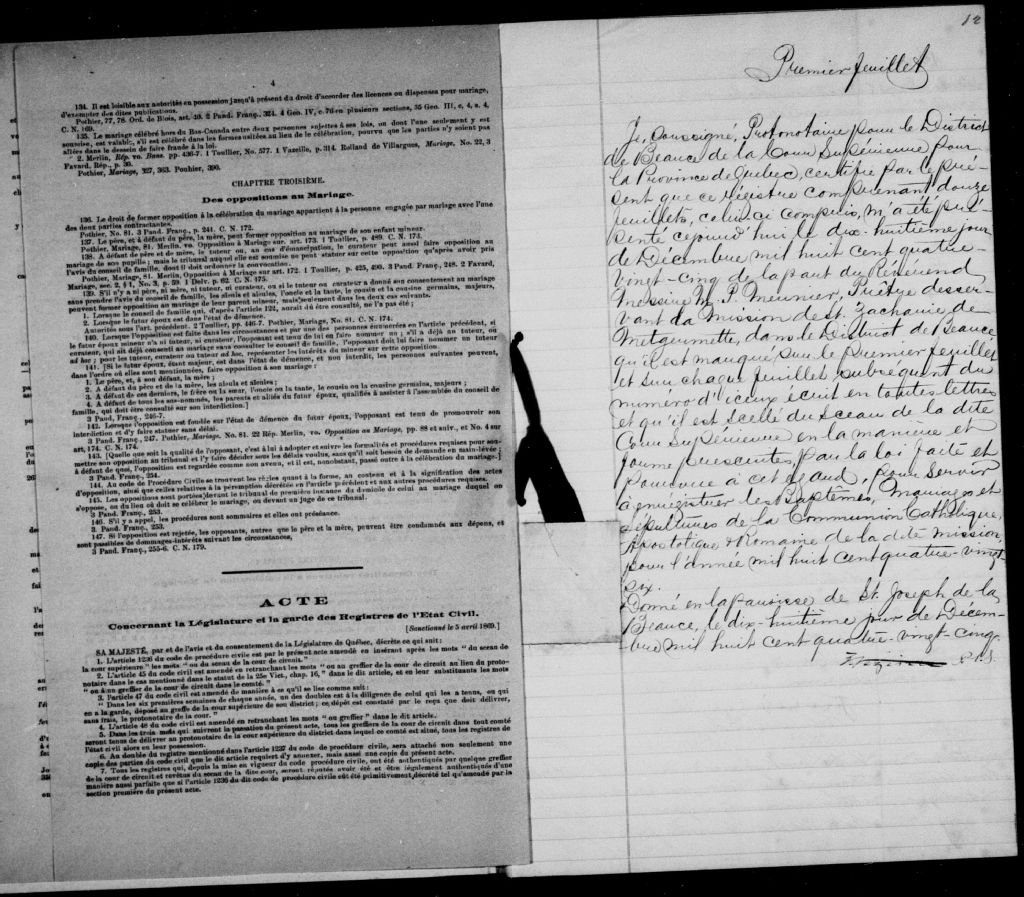 4
134. Il est loisible aux autorités en possession jusqu'à présent du droit d'accorder les licences ou dispenses pour mariage,
d'exempter des dites publications.
Pothier, 77, 78. Ord. de Blois, art. 40. 2 Pand. Franç., 324. 4 Geo. IV, c. 76 en plusieurs sections, 35 Geo. III, c, 4, s. 4,
C. N. 169.
135. Le mariage célébré hors du Bas-Canada entre deux personnes sujettes à ses lois, ou dont l'une seulement y est
soumise, est valable, s'il est célébré dans les formes usitées au lieu de le célébration, pourvu que les parties n'y soient pas
allées dans le dessein de faire fraude à la loi.
2. Merlin, Rép. vo. Bans. pp. 436-7. 1 Toullier, No. 577. 1 Vazeille, p. 314. Rolland de Villargues, Mariage, No. 22, 3
Favard, Rép., p. 36.
Pothier, Mariage, 327, 363. Pouhier, 390.
CHAPITRE TROISIÈME.
Des oppositions au Mariage.
136. Le droit de former opposition à la célébration du mariage appartient à la personne engagée par mariage avec l'une
des deux parties contractantes.
Pothier, No. 81. 3 Pand. Franç., p. 241. C. N. 172.
137. Le père, et à défaut du père, la mère, peut former opposition au mariage de son enfant mineur.
Pothier, Mariage, 81. Merlin, vo. Opposition à Mariage sur. art. 173. 1 Toullier, p. 489. C. N. 174.
138. A défaut de père et de mère, le tuteur ou, au cas d'émancipation, le curateur peut aussi faire opposition au
mariage de son pupille; mais le tribunal auquel elle est soumise ne peut statuer sur cette opposition qu'après avoir pris
l'avis du conseil de famille, dont il doit ordonner la convocation.
Pothier, Mariage, 81. Merlin, Opposition à Mariage sur art. 172. 1 Toullier, p. 425, 490. 3 Pand. Franç., 248. 2 Favard,
Mariage, sec. 2, § 1, No. 3, p. 59. 1 Delv. p. 62. C. N. 175.
139. S'il n'y a ni père, ni mère, ni tuteur, ni curateur, ou si le tuteur ou curateur a donné son consentement au mariage
sans prendre l'avis du conseil de famille, les aïeuls et aïeules, l'oncle et la tante, le cousin et la cousine germains, majeurs,
peuvent former opposition au mariage de leur parent mineur, mais seulement dans les deux cas suivants.
1. Lorsque le conseil de famille qui, d'après l'article 122, aurait dû être consulté, ne l'a pas été;
2. Lorsque le futur époux est dans l'état de démence.
Autorités sous l'art. précédent. 2 Toullier, pp. 446-7. Pothier, Mariage, No. 81. C. N. 174.
140. Lorsque l'opposition est faite dans les circonstances et par une des personnes énumerées en l'article précédent, si
le futur époux mineur n'a ni tuteur, ni curateur, l'opposant est tenu de lui en faire nommer un; s'il a déjà un tuteur, ou
curateur, qui ait déjà conseil au mariage sans consulter le conseil de famille, l'opposant doit lui faire nommer un tuteur
ad hoc; pour les tuteur, curateur ou tuteur ad hoc, représenter les intérêts du mineur sur cette opposition.
141. [Si le futur époux, étant majeur, est dans l'état de démence, et non interdit, les personnes suivantes peuvent,
dans l'ordre où elles sont mentionnées, faire opposition à son mariage:
1. Le père, et, à son défaut, la mère;
2. A défaut du père et de la mère, les aïeuls et aïeules;
3. A défaut de ces derniers, le frère ou la sœur, l'oncle ou la tante, le cousin ou la cousine germains, majeurs;
4. A défaut de tous les sus-nommés, les parents et alliés du futur époux, qualifiés à assister à l'assemblée du conseil de
famille, qui doit être consulté sur son interdiction.]
3 Pand. Franç., 246-7.
142. Lorsque l'opposition est fondée sur l'état de démence du futur époux, l'opposant est tenu de promouvoir son
interdiction et d'y faire statuer sans délai.
3 Pand. Franç., 247. Pothier, Mariage, No. 81. 22 Rép. Merlin, vo. Opposition au Mariage, pp. 88 et suiv., et No. 4 sur
art, 174. C. N. 174.
143. [Quelle que soit la qualité de l'opposant, c'est à lui à adopter et suivre les formalités et procédures requises pour soumettre
son opposition au tribunal et l'y faire décider sous les délais voulus, sans qu'il soit besoin de demande en main-levée;
à défaut de quoi, l'opposition est regardée comme non avenu, et il est, nonobstant, passé outre à la célébration du mariage.]
3 Pand. Franç., 254.
144. Au code de Procédure Civile se trouvent les règles quant à la forme, au contenu et à la signification des actes
d'opposition, ainsi que celles relatives à la péremption décrétée en l'article précédent et aux autres procédures requises.
145. Les oppositions sont portées devant le tribunal de première instance du domicile de celui au mariage duquel on
s'oppose, ou du lieu où doit se célébrer le mariage, ou devant un juge de ce tribunal.
3 Pand. Franç., 253.
146. S'il y a appel, les procédures sont sommaires et elles ont préséance.
3. Pand. Franç., 253.
147. Si l'opposition est rejetée, les opposants, autres que le père et la mère, peuvent être condamnés aux dépens, et
sont passibles de dommages-intérêts suivant les circonstances.
3 Pand. Franç., 255-6. C. N. 179.
ACTE
Concernant la Législature et la garde des Registres de l'Etat Civil.
[Sanctionné le 5 avril 1869.]
SA MAJESTÉ, par et de l'avis et du consentement de la Législature de Québec, décrète ce qui suit:
1. L'article 1236 du code de procédure civile est par le présent acte amendé en insérant après les mots "du sceau de
la cour supérieure" les mots "ou du sceau de la cour de circuit."
2. L'article 45 du code civil est amendé en retranchant les mots "ou au greffier de la cour de circuit au lieu du protonotaire
dans le cas mentionné dans le statut de la 25e Vict., chap. 16," dans le dit article, et en leur substituants les mots
"ou à un greffier de la cour de circuit dans le comté."
3. l'article 47 du code civil est amendé de manière à ce qu'il se lise comme suit:
"Dans les six premières semaines de chaque année, un des doubles est à la diligence de celui qui les a tenus, ou qui
en a la garde, déposé au greffe de la cour supérieure de son district; ce dépôt est constaté par le reçu que doit délivrer,
sans frais, le protonotaire de la cour."
4. L'article 48 du code civil est amendé en retranchant les mots "ou greffier" dans le dit article.
5. Dans les trois mois qui suivront la passation du présent acte, tous les greffiers de la cour de circuit dans tout comté
seront tenus de délivrer au protonotaire de la cour supérieure du district dans lequel ce comté est situé, tous les registres de
l'état civil alors en leur possession.
6. Au double du registre mentionné dans l'article 1237 du code de procédure civile, sera attaché non seulement une
copie des parties du code civil que le dit article requiert d'y annexer, mais aussi une copie du présent acte.
7. Tous les registres qui, depuis la mise en vigueur du code procédure civile, ont été authentiqués par quelque greffier
de la cour de circuit et revêtus du sceau de la dite cour, seront réputés avoir été et être légalement authentiqués d'une
manière aussi parfaite que si l'article 1236 du dit code de procédure civile eût été primitivement décrété tel qu'amendé par la
section première du présent acte.
12
Premier feuillet
Je, soussigné, Protonotaire pour le District
de Beauce de la Cour Supérieure pour
la Province de Québec, certifie par le pré-
sent que ce régistre comprenant douze
feuillets, celui ci compris, m'a été pré-
senté cejourd'hui le dix-huitième jour
de Décembre mil huit cent quatre-
vingt-cinq de la part du Révérend
Messire M. P. Meunier, Prêtre desser-
vant la Mission de St. Zacharie de
Metgermette, dans le District de Beauce
qu'il est marqué sur le premier feuillet
et sur chaque feuillet subséquent du
numéro d'iceux écrit en toutes lettres
et qu'il est scellé du sceau de la dite
Cour Supérieure en la manière et
forme prescrites, par la loi faite et
pourvue à cet égard, pour servir
à enregistrer les Baptêmes, Mariages et
Sépultures de la Communion Catholique,
Apostolique & Romaine de la dite mission,
pour l'année mil huit cent quatre-vingt
six.
Donné en la paroisse de St. Joseph de la
Beauce, le dix-huitième jour de Décem-
bre mil huit cent quatre-vingt-cinq.
P.C.S.